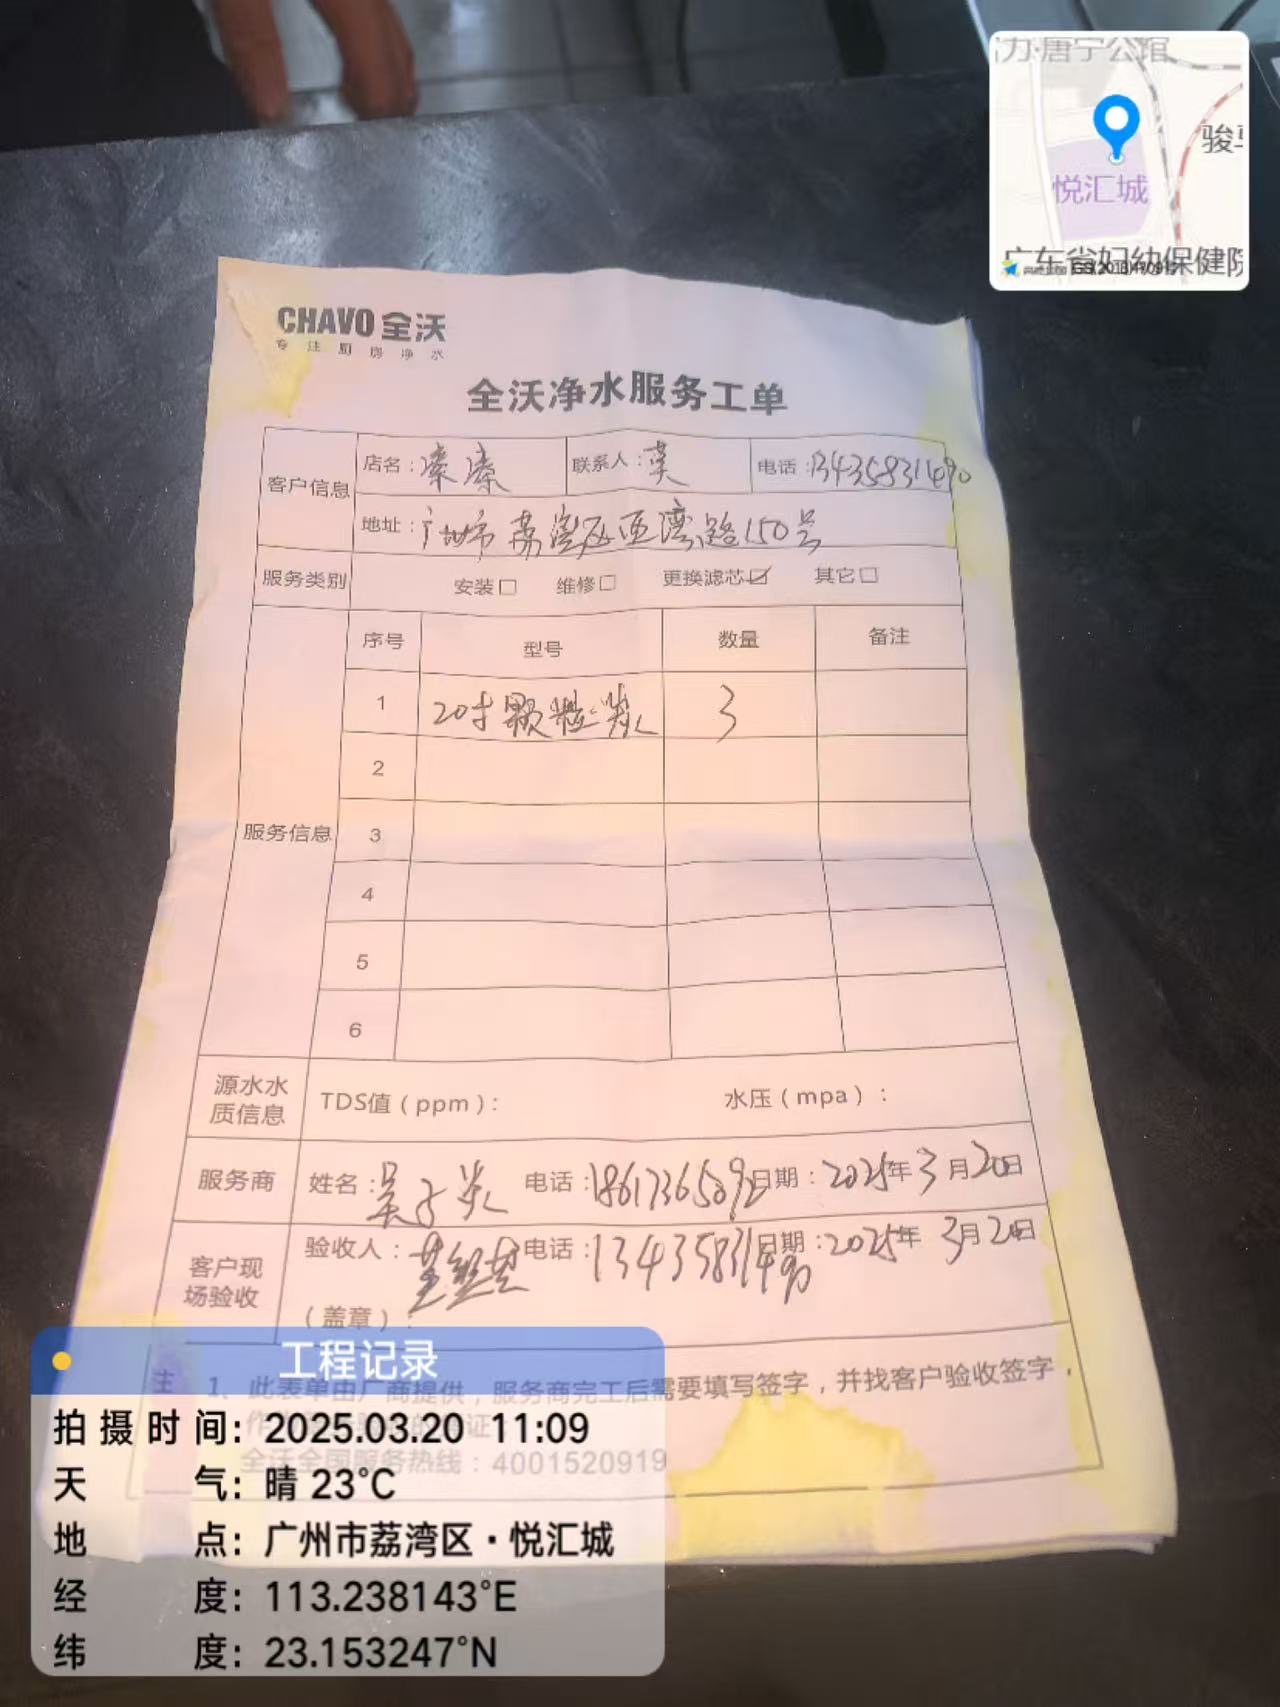 力·唐宁公馆
骏
悦汇城
广东省妇幼保健院
CHAVO 全沃
专注厨房净水
全沃净水服务工单
客户信息 店名：溱溱 联系人：英 电话：13435831490
地址：广州市荔湾区西湾路150号
服务类别 安装□ 维修□ 更换滤芯☑ 其它□
服务信息 序号 型号 数量 备注
1 20寸颗粒炭 3
2
3
4
5
6
源水水质信息 TDS值（ppm）： 水压（mpa）：
服务商 姓名：吴子炎 电话：18617365092 日期：2025年3月20日
客户现场验收 验收人： 电话：13435831490 日期：2025年3月20日
（盖章）：
注 1、此表单由厂商提供，服务商完工后需要填写签字，并找客户验收签字，
证
全沃全国服务热线：4001520919
工程记录
拍摄时间：2025.03.20 11:09
天气：晴 23°C
地点：广州市荔湾区·悦汇城
经度：113.238143°E
纬度：23.153247°N